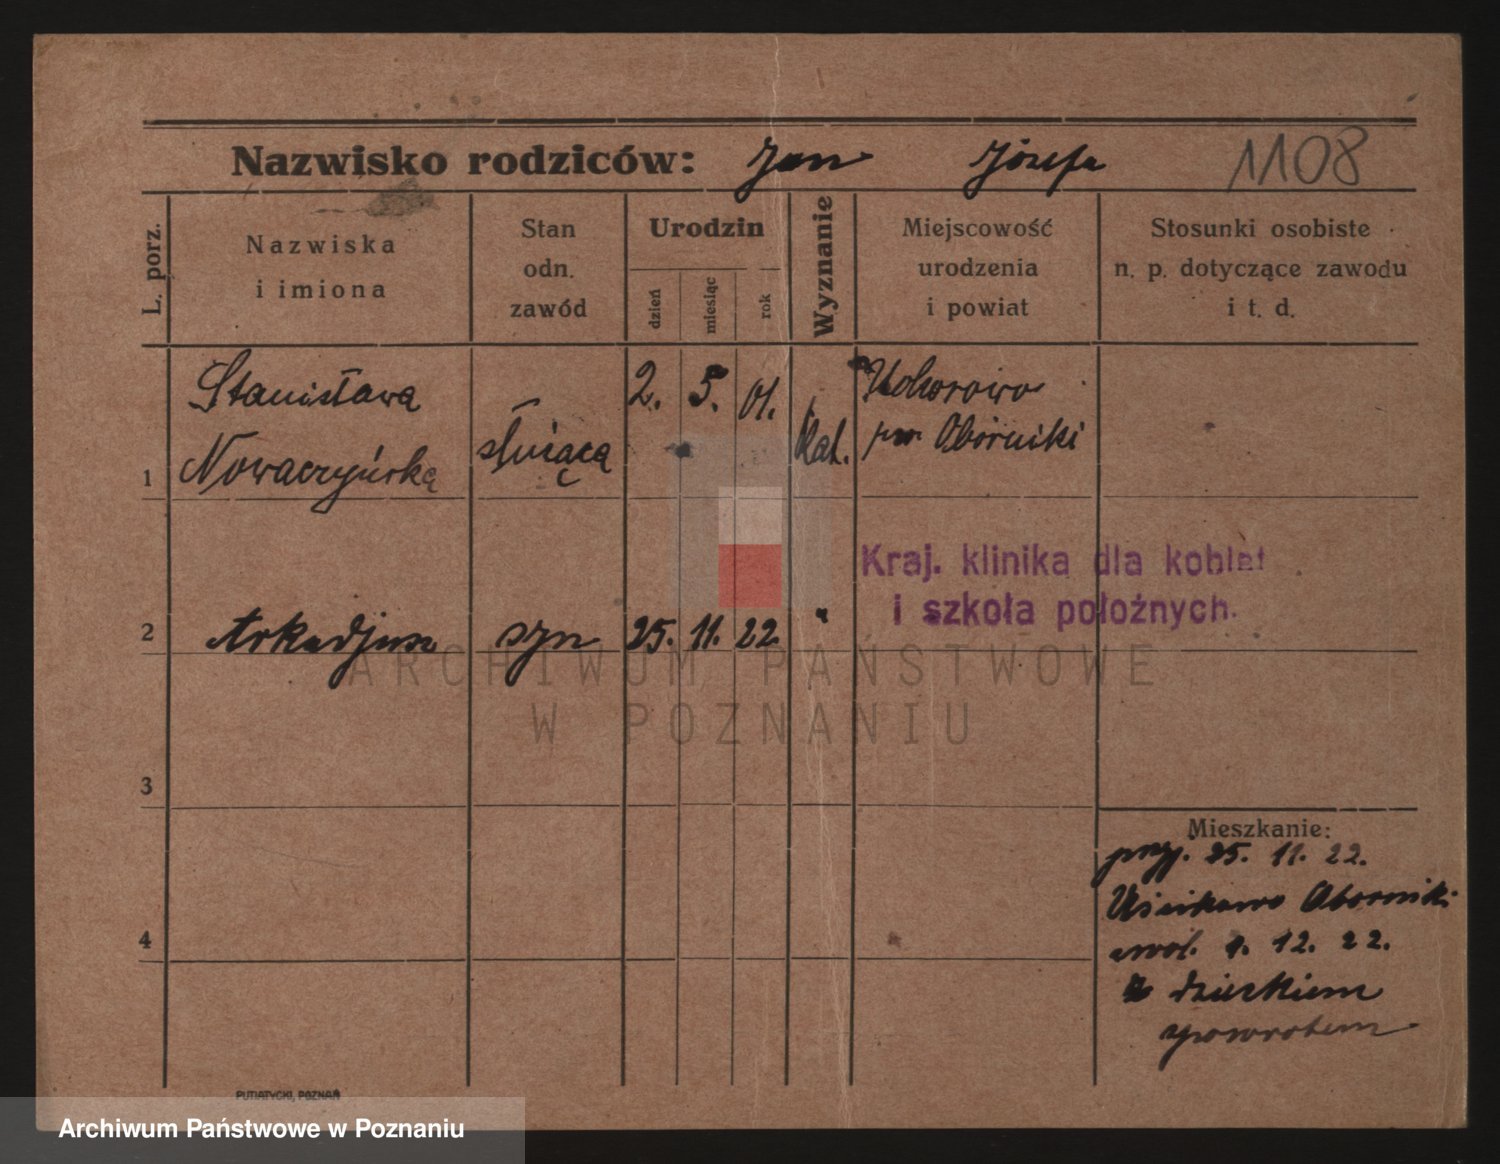 Nazwisko rodziców: Jan Józefa 1108
L. porz.
Nazwiska
i imiona
Stan
odn.
zawód
Urodzin
dzień
miesiąc
rok
Wyznanie
Miejscowość
urodzenia
i powiat
Stosunki osobiste
n. p. dotyczące zawodu
i t. d.
Stanisława 2. 5. 01.
1 Nowaczyńska służąca Kat. pow. Oborniki
Kraj. klinika dla kobiet
i szkoła położnych.
2 Arkadjusz syn 25. 11. 22 "
ARCHIWUM PAŃSTWOWE
W POZNANIU
3
4
Mieszkanie:
przy. 25. 11. 22.
Oborniki
1. 12. 22.
z dzieckiem
spowrotem
PUTIATYCKI, POZNAŃ
Archiwum Państwowe w Poznaniu